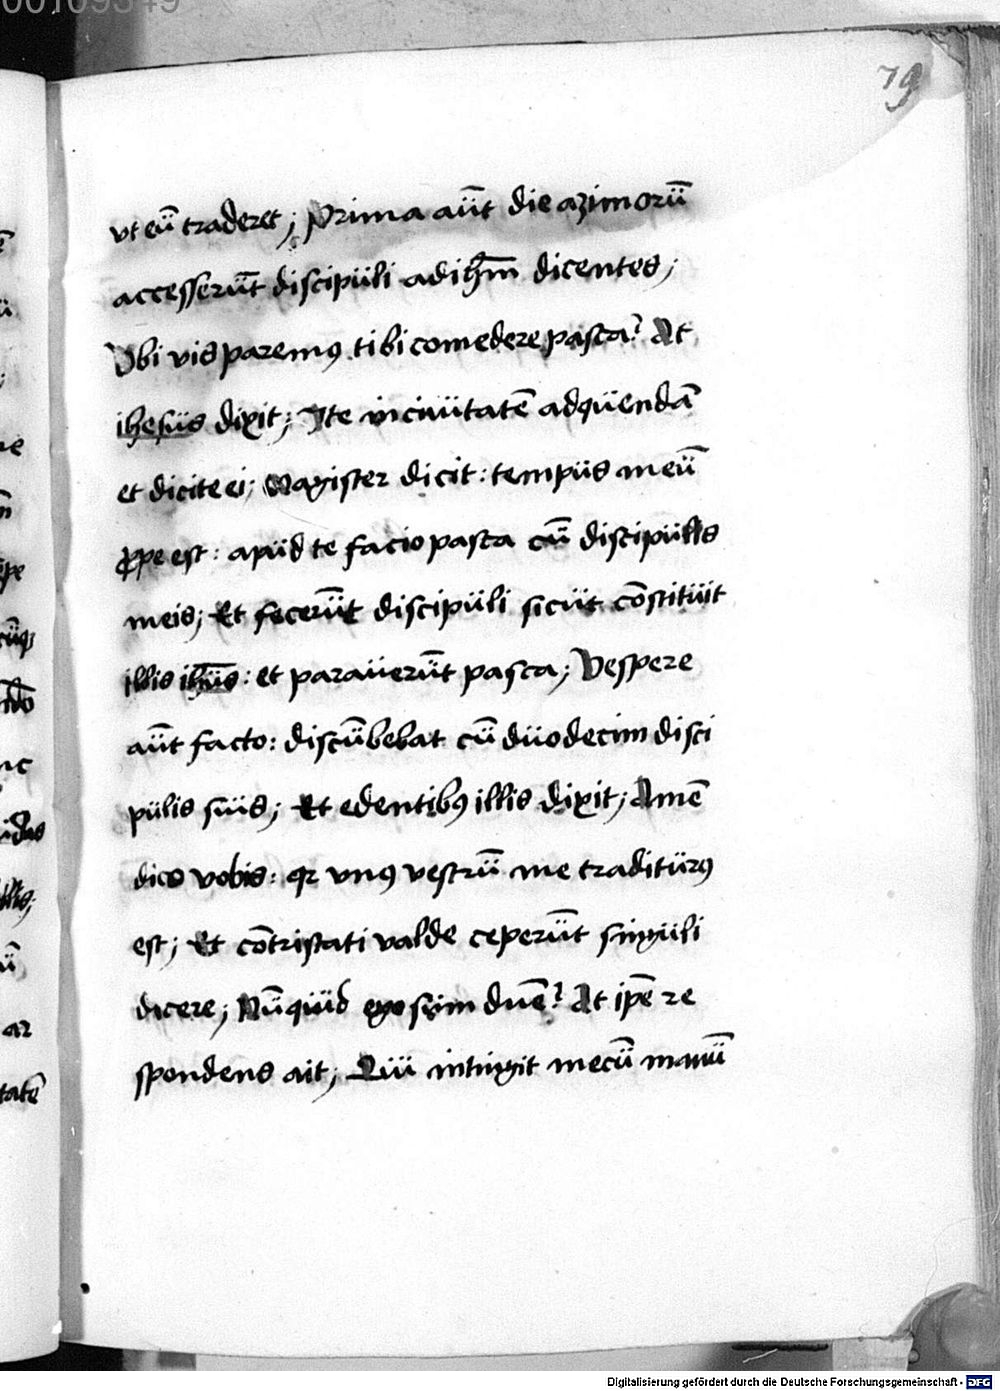 79
vt eū traderet; Prima aūt die azimorū
accesserūt discipuli ad ihm̄ dicentes;
Vbi vis paremꝰ tibi comedere pasca? At
ihesus dixit; Ite in ciuitatē ad quendā
et dicite ei; Magister dicit: tempus meū
ꝓpe est: apud te facio pasca cū discipulis
meis; Et fecerūt discipuli sicut cōstituit
illis ihūs: et parauerūt pasca; Vespere
aūt facto: discūbebat cū duodecim disci
pulis suis; Et edentibꝰ illis dixit; Amē
dico vobis: qꝛ vnꝰ vestrū me traditurꝰ
est; Et cōtristati valde ceperūt singuli
dicere; Nūquid ego sum dn̄e? At ip̄e re
spondens ait; Qui intingit mecū manū
Digitalisierung gefördert durch die Deutsche Forschungsgemeinschaft - DFG